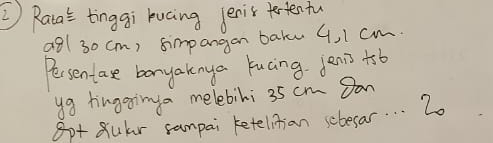 2) Rata² tinggi kucing jenis tertentu
adl 30 cm, simpangan baku 4,1 cm.
Persentase banyaknya kucing jenis tsb
yg tingginya melebihi 35 cm dan
dpt diukur sampai ketelitian sebesar ... ?